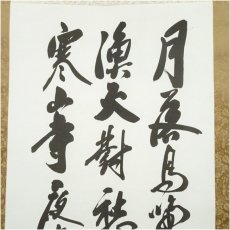 月落烏啼
漁火對愁
寒山寺夜